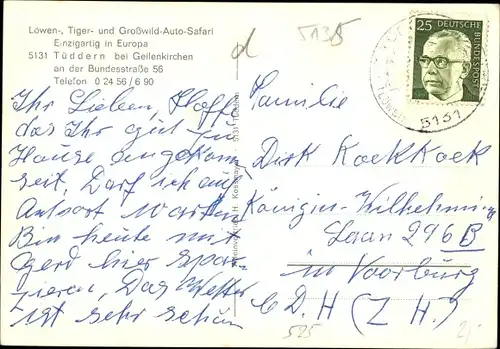 Löwen-, Tiger- und Großwild-Auto-Safari
Einzigartig in Europa
5131 Tüddern bei Geilenkirchen
an der Bundesstraße 56
Telefon 0 24 56 / 6 90
Ihr Lieben, Hoffe
das Ihr gut zu
Hause angekom
seit, Darf ich auf
Antwort warten
Bin heute mit
Gerd hier spa-
zieren, Das Wetter
ist sehr schön
5135
25 DEUTSCHE
BUNDESPOST
5131
Familie
Dirk Koekkoek
Königin-Wilhelmina
Laan 296B
in Voorburg
b/D.H. (Z.H.)
525
2,-